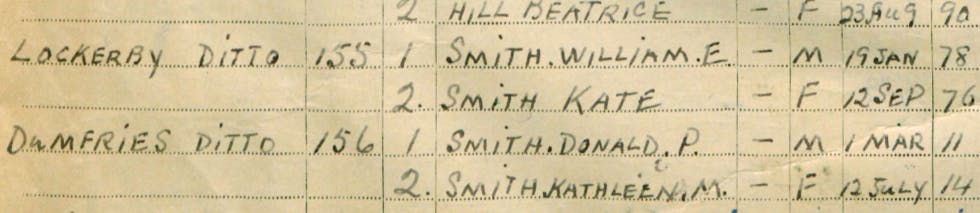 2 HILL BEATRICE - F 23 AUG 90
LOCKERBY DITTO 155 1 SMITH. WILLIAM. E - M 19 JAN 78
2. SMITH KATE - F 12 SEP 76
DUMFRIES DITTO 156 1 SMITH. DONALD. P. - M 1 MAR 11
2. SMITH. KATHLEEN. M. - F 12 JULY 14